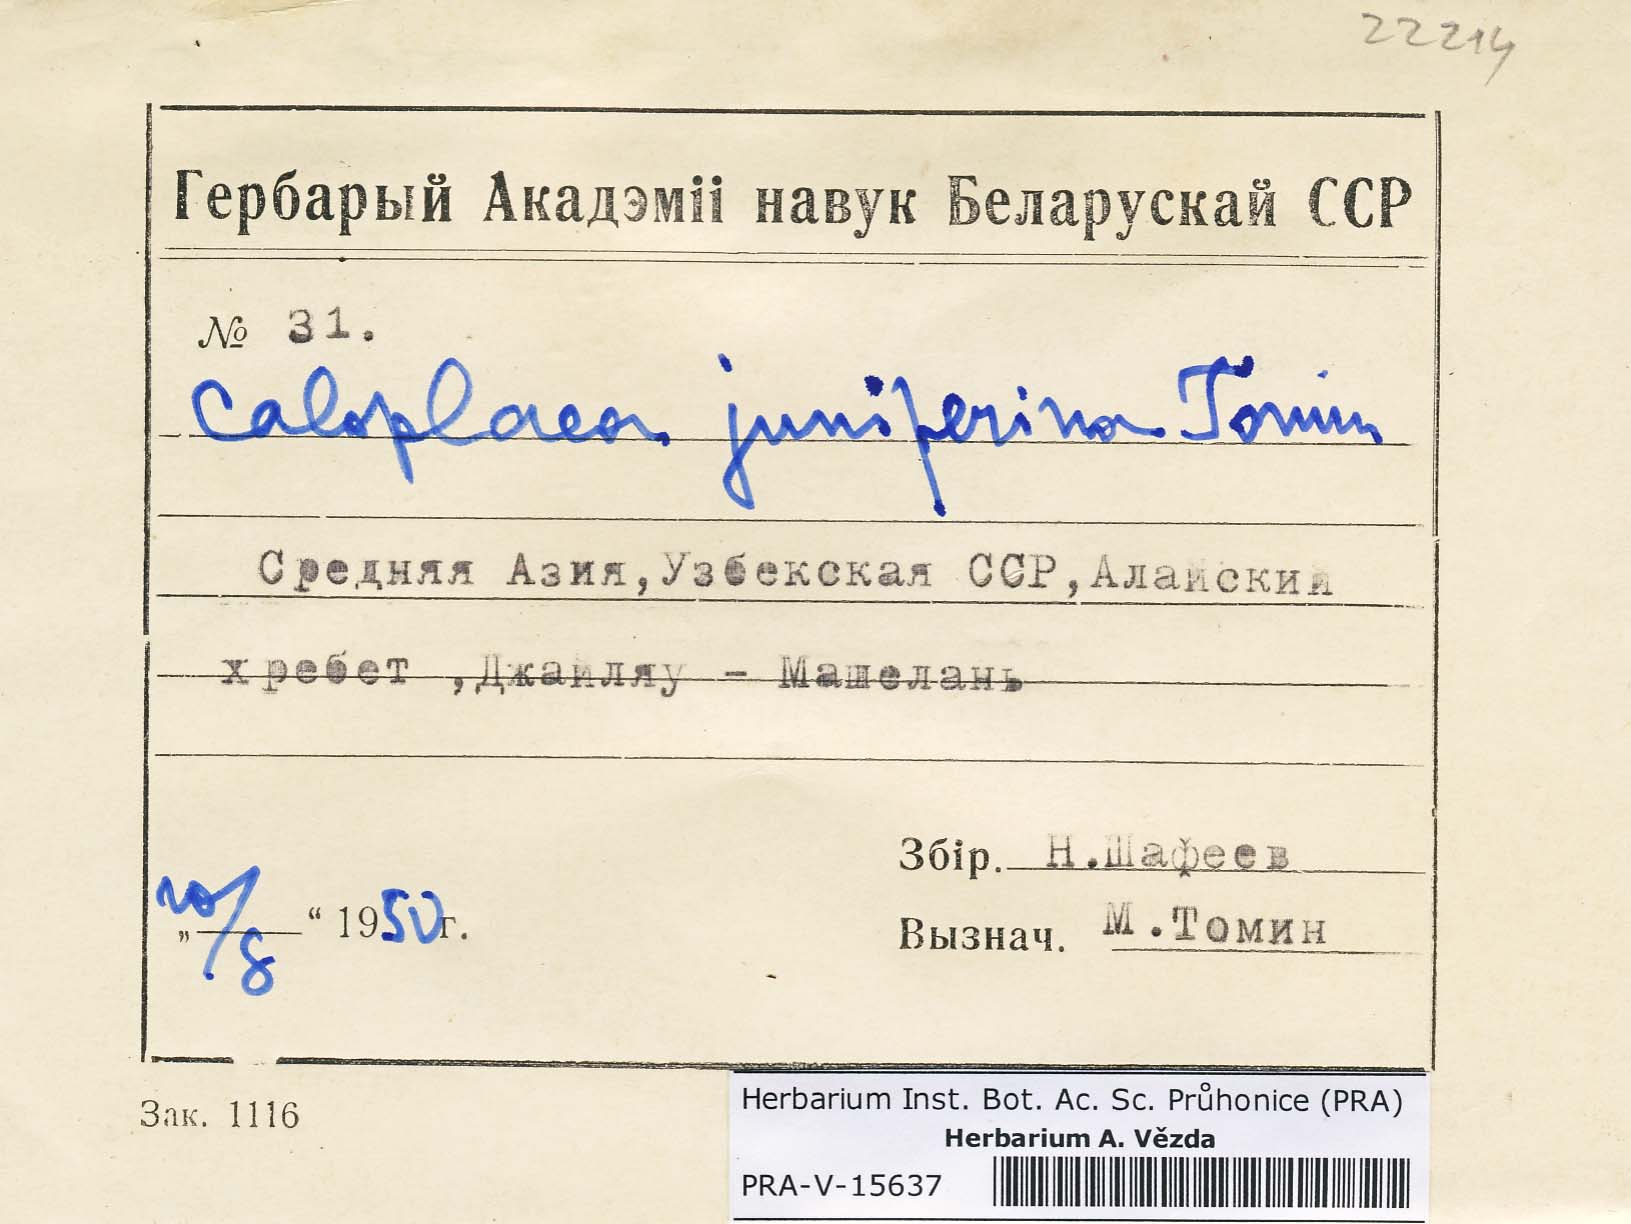 22214
Гербарый Акадэміі навук Беларускай ССР
№ 31.
Caloplaca juniperina Tomin
Средняя Азия,Узбекская ССР,Алайский
хребет ,Джайляу - Машелань
Збір. Н.Шафеев
„10/8“ 1950г.
Вызнач. М.Томин
Зак. 1116
Herbarium Inst. Bot. Ac. Sc. Průhonice (PRA)
Herbarium A. Vězda
PRA-V-15637